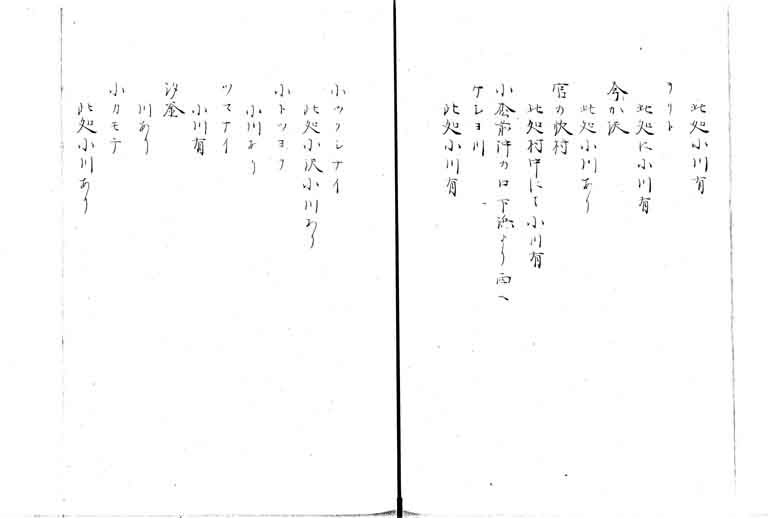 此処小川有
リリト
此処に小川有
今か沢
此処小川あり
宮の歌村
此処村中にて小川有
小松前沖の口下浜より西へ
ケショ川
此処小川有
小ツクシナイ
此処小沢小川あり
小トツヨフ
小川あり
ツマナイ
小川有
汐釜
川あり
小カモテ
此処小川あり